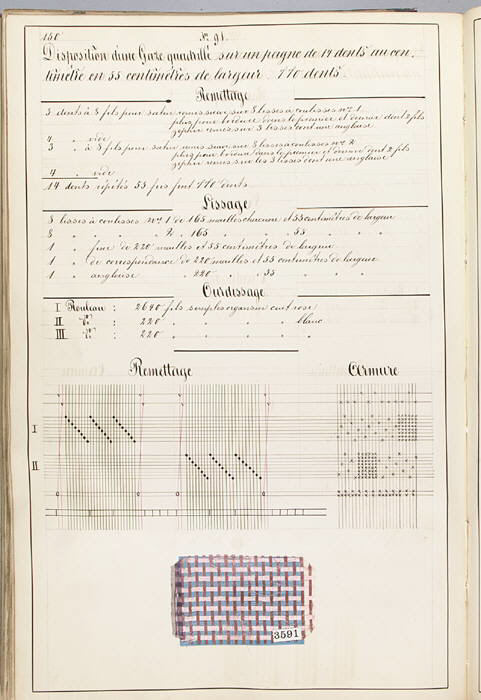 150
No. 91.
Disposition d'une Gaze quadrillé sur un peigne de 14 dents au cen-
timètre en 55 centimètres de largeur. 770 dents
Remettage
3 dents à 8 fils pour satin remis suivi sur 8 lisses à coulisses No. 1
plus pour bordure dans le premier et
remis sur 3 lisses dont une anglaise
4 " vide
3 " à 8 fils pour satin remis suivi sur 8 lisses à coulisses No. 2
plus pour bordure dans le premier et dont 2 fils
remis sur les 3 lisses dont une anglaise
4 " vide
14 dents répétés 55 fois font 770 dents.
Lissage
8 lisses à coulisses No. 1 de 165 mailles chacune et 55 centimètres de largeur
8 " " " 2 " 165 " " 55 " "
1 " fixe de 220 mailles et 55 centimètres de largeur
1 " de correspondance de 220 mailles et 55 centimètres de largeur
1 " anglaise " 220 " " 55 " " "
Ourdissage
I Rouleau : 2640 fils simples organsin cuit rose
II do : 220 " " " " blanc
III do : 220 " " " " "
Remettage
Armure
I
II
3591